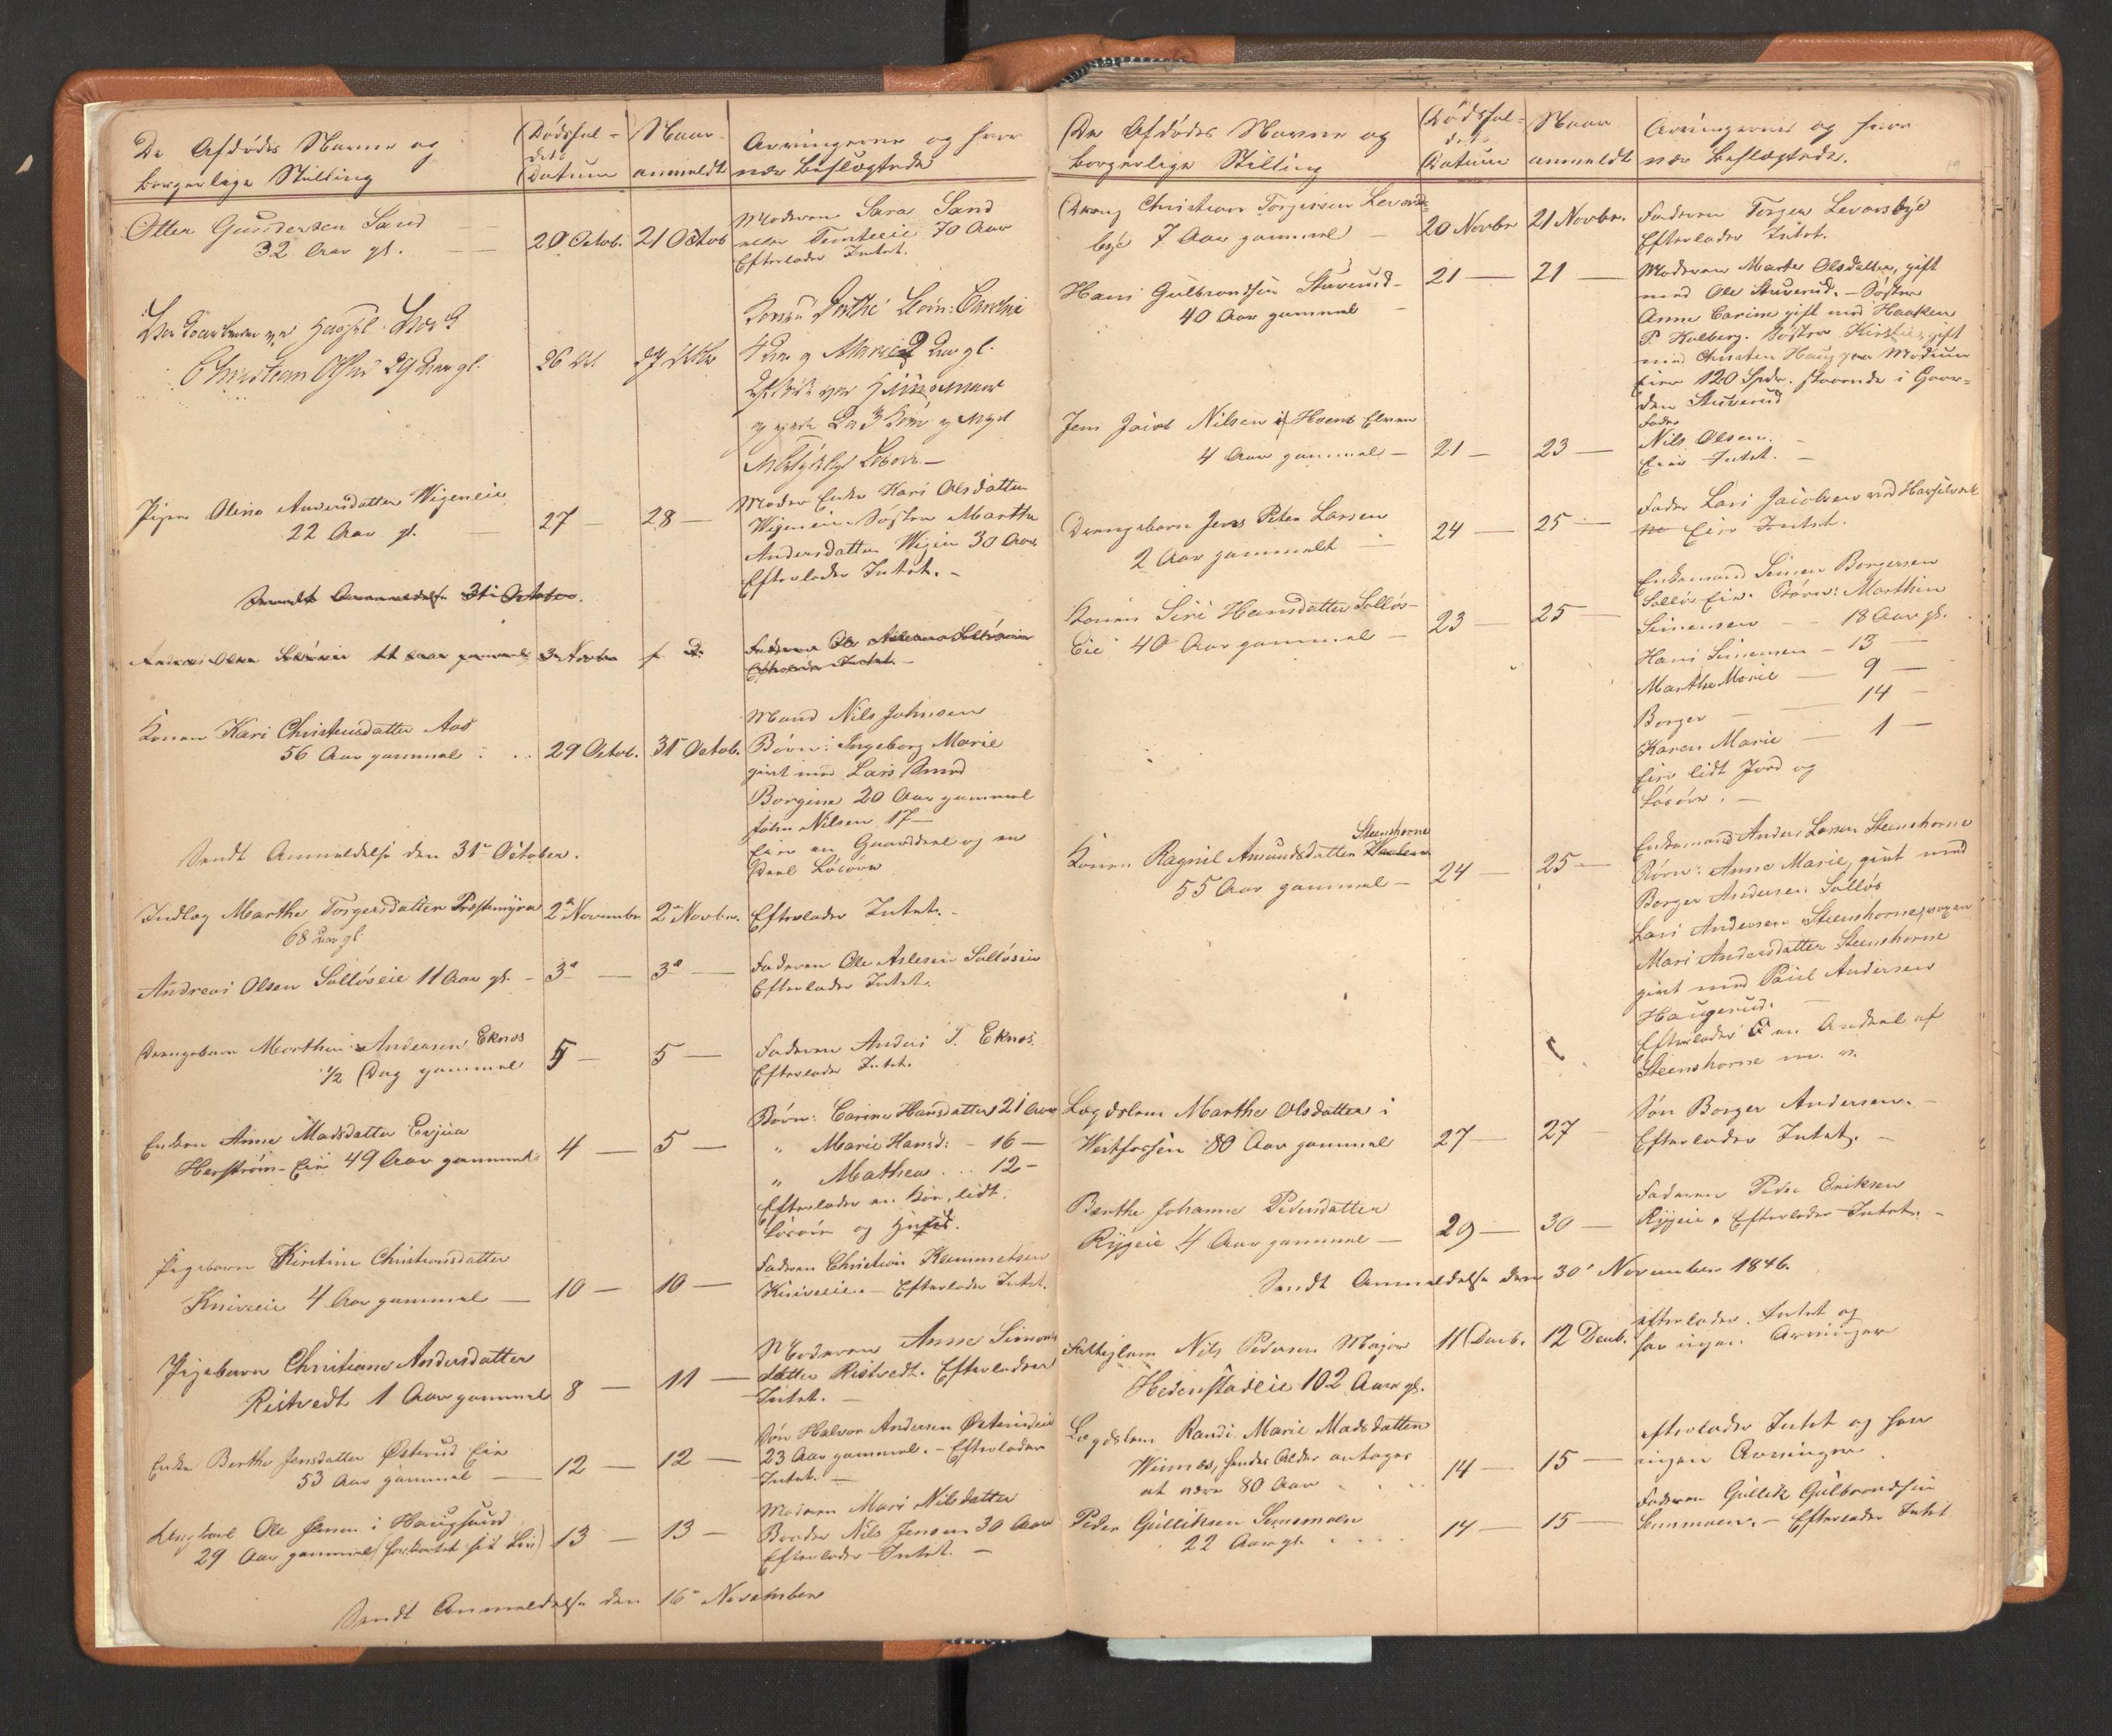 De Afdødes Navne og
borgerlige Stilling
Dødsfal-
dets
Datum
Naar
anmeldt
Arvingerne og hvor
nær beslægtede
Otter Gundersen Sand
32 Aar gl.
20 Octob.
21 Octob
Moderen Sara Sand
eller 70 Aar
Efterlader Intet.
Christian 29 Aar gl.
26 Oct
27 Octbr
Konen Børn:
4 Aar og Marie 2 Aar gl.
og
Pigen Olina Andersdatter Wigeneie
22 Aar gl.
27 —
28 —
Moder Enke Kari Olsdatter
Wigeneie. Søster Marthe
Andersdatter Wigen 30 Aar
Efterlader Intet. -
Sendt Anmeldelse 31 October.
Andreas Olsen Solløseie 11 Aar gammel
3 Novbr
Faderen Ole Aslesen Solløseie
Efterlader Intet. -
Konen Kari Christensdatter Aas
56 Aar gammel
29 Octob.
31 Octob.
Mand Nils Johnsen
Børn: Ingeborg Marie
givt med Lars
Borgine 20 Aar gammel
John Nilsen 17 —
Eier en Gaarddeel og en
Deel Løsøre
Sendt Anmeldelse den 31 October.
Indlæg Marthe Torgersdatter Præstemyra
68 Aar gl.
2 November
2 Novbr.
Efterlader Intet. -
Andreas Olsen Solløseie 11 Aar gl. -
3 —
3 —
Faderen Ole Aslesen Solløseie
Efterlader Intet.
Drengebarn Marthin Andersen Eknes
1/2 Dag gammel
5 —
5 —
Faderen Anders T. Eknes.
Efterlader Intet.
Enken Anne Madsdatter
Herstrøm-Eie 49 Aar gammel
4 —
5 —
Børn: Carine Hansdatter 21 Aar
" Marie Hansd: - 16 —
" Mathea . .. 12 -
Efterlader en Koe, lidt
Løsøre og
Pigebarn Kirstine Christiansdatter
Kniveeie 4 Aar gammel —
10 —
10 —
Faderen Christian
Kniveeie. - Efterlader Intet.
Pigebarn Christiane Andersdatter
Ristvedt 1 Aar gammel
8 —
11 —
Moderen Anne Simons
datter Ristvedt. Efterlader
Intet. —
Enke Berthe Jensdatter Østerud Eie
53 Aar gammel —
12 —
12 —
Søn Halvor Andersen
23 Aar gammel. - Efterlader
Intet. —
Ungkarl Ole Jensen i Haugsund
29 Aar gammel (forkortet sit Liv)
13 —
13 —
Moderen Mari Nilsdatter
Broder Nils Jensen 30 Aar
Efterlader Intet. —
Sendt Anmeldelse den 16 November
De Afdødes Navne og
borgerlige Stilling
Dødsfal-
dets
Datum
Naar
anmeldt
Arvingerne og hvor
nær beslægtede.
Dreng Christian Torgersen Levords-
bye 7 Aar gammel —
20 Novbr
21 Novbr.
Faderen Torger Levorsbye
Efterlader Intet.
Hans Gulbrandsen Stuverud -
40 Aar gammel —
21 —
21 —
Moderen Marte Olsdatter, gift
med Ole Stuverud. - Søster
Anne Carine gift med Haaken
P. Kolberg. Søster Kirstie, gift
med Christen Haug paa Modum
Eier 120 Spdr. staaende i Gaar-
den Stuverud
Jens Jacob Nilsen i Hoens Elven
4 Aar gammel —
21 —
23 —
Fader
Nils Olsen. -
Eier Intet. -
Drengebarn Jens Peter Larsen
2 Aar gammelt —
24 —
25 —
Fader Lars Jacobsen ved
Eier Intet.
Konen Siri Hansdatter Solløs-
Eie 40 Aar gammel —
23 —
25 —
Enkemand Simen Borgersen
Solløs Eie. Børn: Marthin
Simensen — 18 Aar gl.
Hans Simensen - 13 —
Marthe Marie — 9 —
Borger — 14 —
Karen Marie — 1 —
Eier lidt Jord og
Løsøre. -
Steenshorne
Konen Ragnil Amundsdatter
55 Aar gammel —
24 —
25 —
Enkemand Anders Larsen Steenshorne
Børn: Anne Marie, givt med
Borger Andersen Solløs
Lars Andersen Steenshorne, voxen
Mari Andersdatter Steenshorne
givt med Paul Andersen
Haugerud.
Efterlader en Andeel af
Steenshorne m. v.
Lægdslem Marthe Olsdatter i
Westfossen 80 Aar gammel
27 —
27 —
Søn Borger Andersen. -
Efterlader Intet. -
Berthe Johanne Pedersdatter
Rygeie 4 Aar gammel —
29 —
30 —
Faderen Peder Eriksen
Rygeie. Efterlader Intet. -
Sendt Anmeldelse den 30 November 1846.
Fattiglem Nils Pedersen Major
Hedenstadeie 102 Aar gl.
11 Decb.
12 Decb.
efterlader Intet og
har ingen Arvinger
Lægdslem Randi Marie Madsdatter
Wiimes, hendes Alder antages
at være 80 Aar
14 —
15 —
efterlader Intet og har
ingen Arvinger
Peder Gulliksen Semsmoen
22 Aar gl.
14 —
15 —
Faderen Gullik Gulbrandsen
Semsmoen. - Efterlader Intet